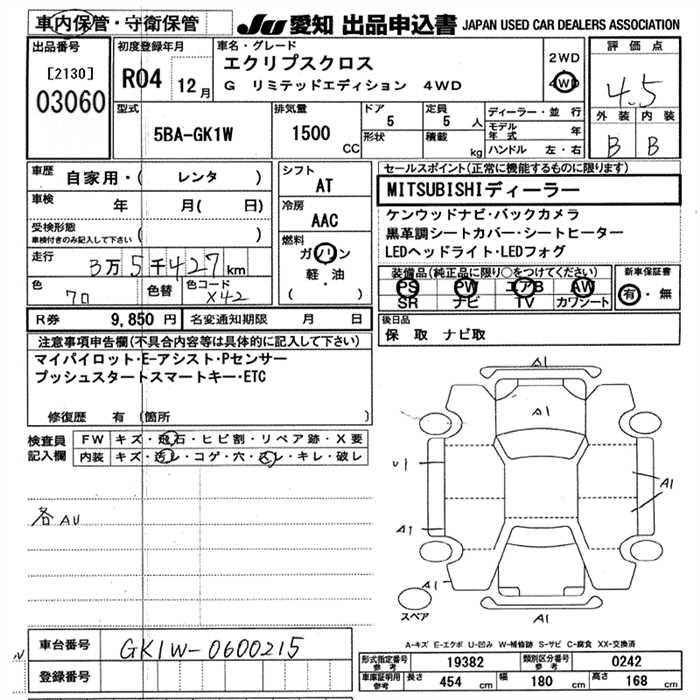 車内保管・守衛保管
JU 愛知 出品申込書 JAPAN USED CAR DEALERS ASSOCIATION
出品番号
[2130]
03060
初度登録年月
R04 12月
車名・グレード
エクリプスクロス
G リミテッドエディション 4WD
2WD
4WD
評価点
4.5
外装 内装
B B
型式
5BA-GK1W
排気量
1500 CC
ドア
5
形状
定員
5 人
積載
kg
ディーラー・並行
モデル年式 年
ハンドル 左・右
車歴 自家用・( レンタ )
車検 年 月( 日)
受検形態
車検付きのみ記入して下さい ( )
走行 3万5千427km
色 クロ 色替 色コード X42
シフト
AT
冷房
AAC
燃料
ガソリン
軽・油
( )
セールスポイント(正常に機能するものに限ります)
MITSUBISHIディーラー
ケンウッドナビ・バックカメラ
黒革調シートカバー・シートヒーター
LEDヘッドライト・LEDフォグ
装備品(純正品に限り○をつけてください)
PS PW エアB AW
SR ナビ TV カワシート
新車保証書
有・無
R券 9,850 円 名変通知期限 月 日
後日品
保 取 ナビ取
注意事項申告欄(不具合内容等は具体的に記入して下さい)
マイパイロット・E-アシスト・Pセンサー
プッシュスタートスマートキー・ETC
修復歴 有 (箇所 )
検査員記入欄
FW キズ・飛石・ヒビ割・リペア跡・X要
内装 キズ・汚レ・コゲ・穴・スレ・キレ・破レ
各AU
A1
A1
U1
A1
A1
A1
A1
スペア
A-キズ E-エクボ U-凹み W-補修跡 S-サビ C-腐食 XX-交換済
車台番号 GK1W-0600215
登録番号
形式指定番号 参考 19382 類別区分番号 参考 0242
車庫証明用 参考 長さ 454 cm 幅 180 cm 高さ 168 cm